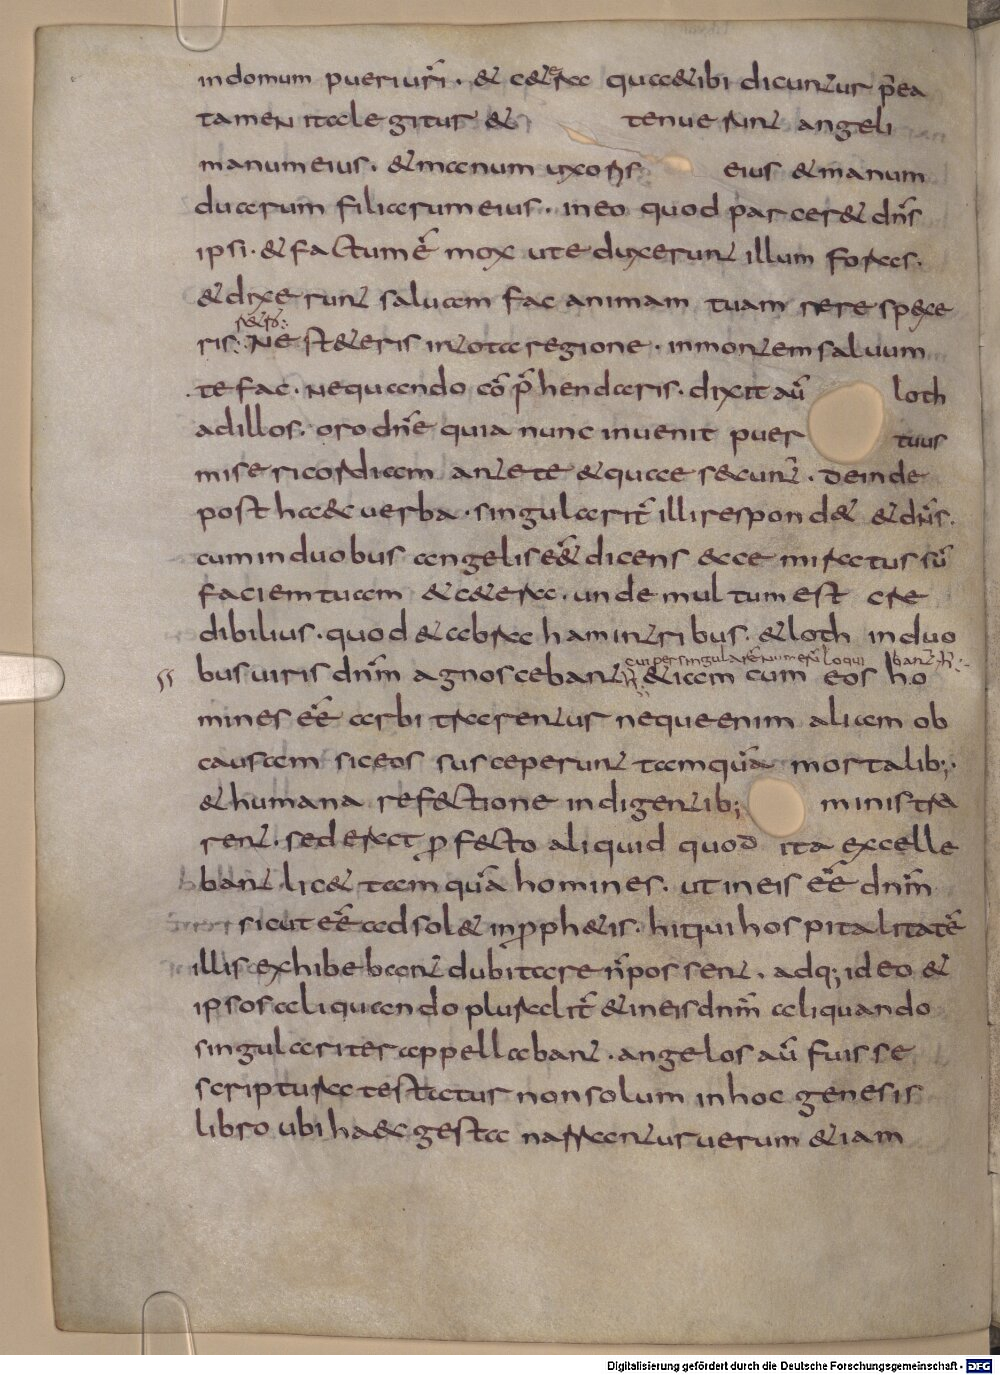 in domum pueri uri̅ · & cetera quae ibi dicuntur p̅ea
tamen ita legitur & tenuerunt angeli
manum eius · & manum uxoris eius & manum
duarum filiarum eius · in eo quod parcer& dn̅s
ipsi · & factum e̅ mox ut eduxerunt illum foras ·
& dixerunt saluam fac animam tuam ne respexe
ris · Ne st&eris in tota regione · in montem saluum
te fac · nequando co̅p̅hendaris · dixit au̅ loth
ad illos · oro dn̅e quia nunc inuenit puer tuus
misericordiam ante te & quae secunt̅ · deinde
post haec uerba · singularit̅ illi respond& & dn̅s ·
cum in duobus angelis e̅e̅ dicens ecce miratus su̅
faciem tuam & cetera · unde multum est cre
dibilius · quod & abraham in tribus · & loth in duo
bus uiris dn̅m agnoscebant
cui per singulare̅ numeru̅ loqui bant
&iam cum eos ho
mines e̅e̅ arbitrarentur neque enim aliam ob
causam sic eos susceperunt tamqua̅ mortalib;
& humana refectione indigentib; ministra
rent · sed erat p̲fecto aliquid quod ita excelle
bant lic& tamqua̅ homines · ut in eis e̅e̅ dn̅m
sicut e̅e̅ adsol& in p̲ph&is · hi qui hospitalitate̅
illis exhibebant dubitare n̅ possent · adq; ideo &
ipsos aliquando pluralit̅ & in eis dn̅m aliquando
singulariter appellabant · angelos au̅ fuisse
scriptura testatur non solum in hoc genesis
libro ubi haec gesta narrantur uerum &iam
Digitalisierung gefördert durch die Deutsche Forschungsgemeinschaft · DFG